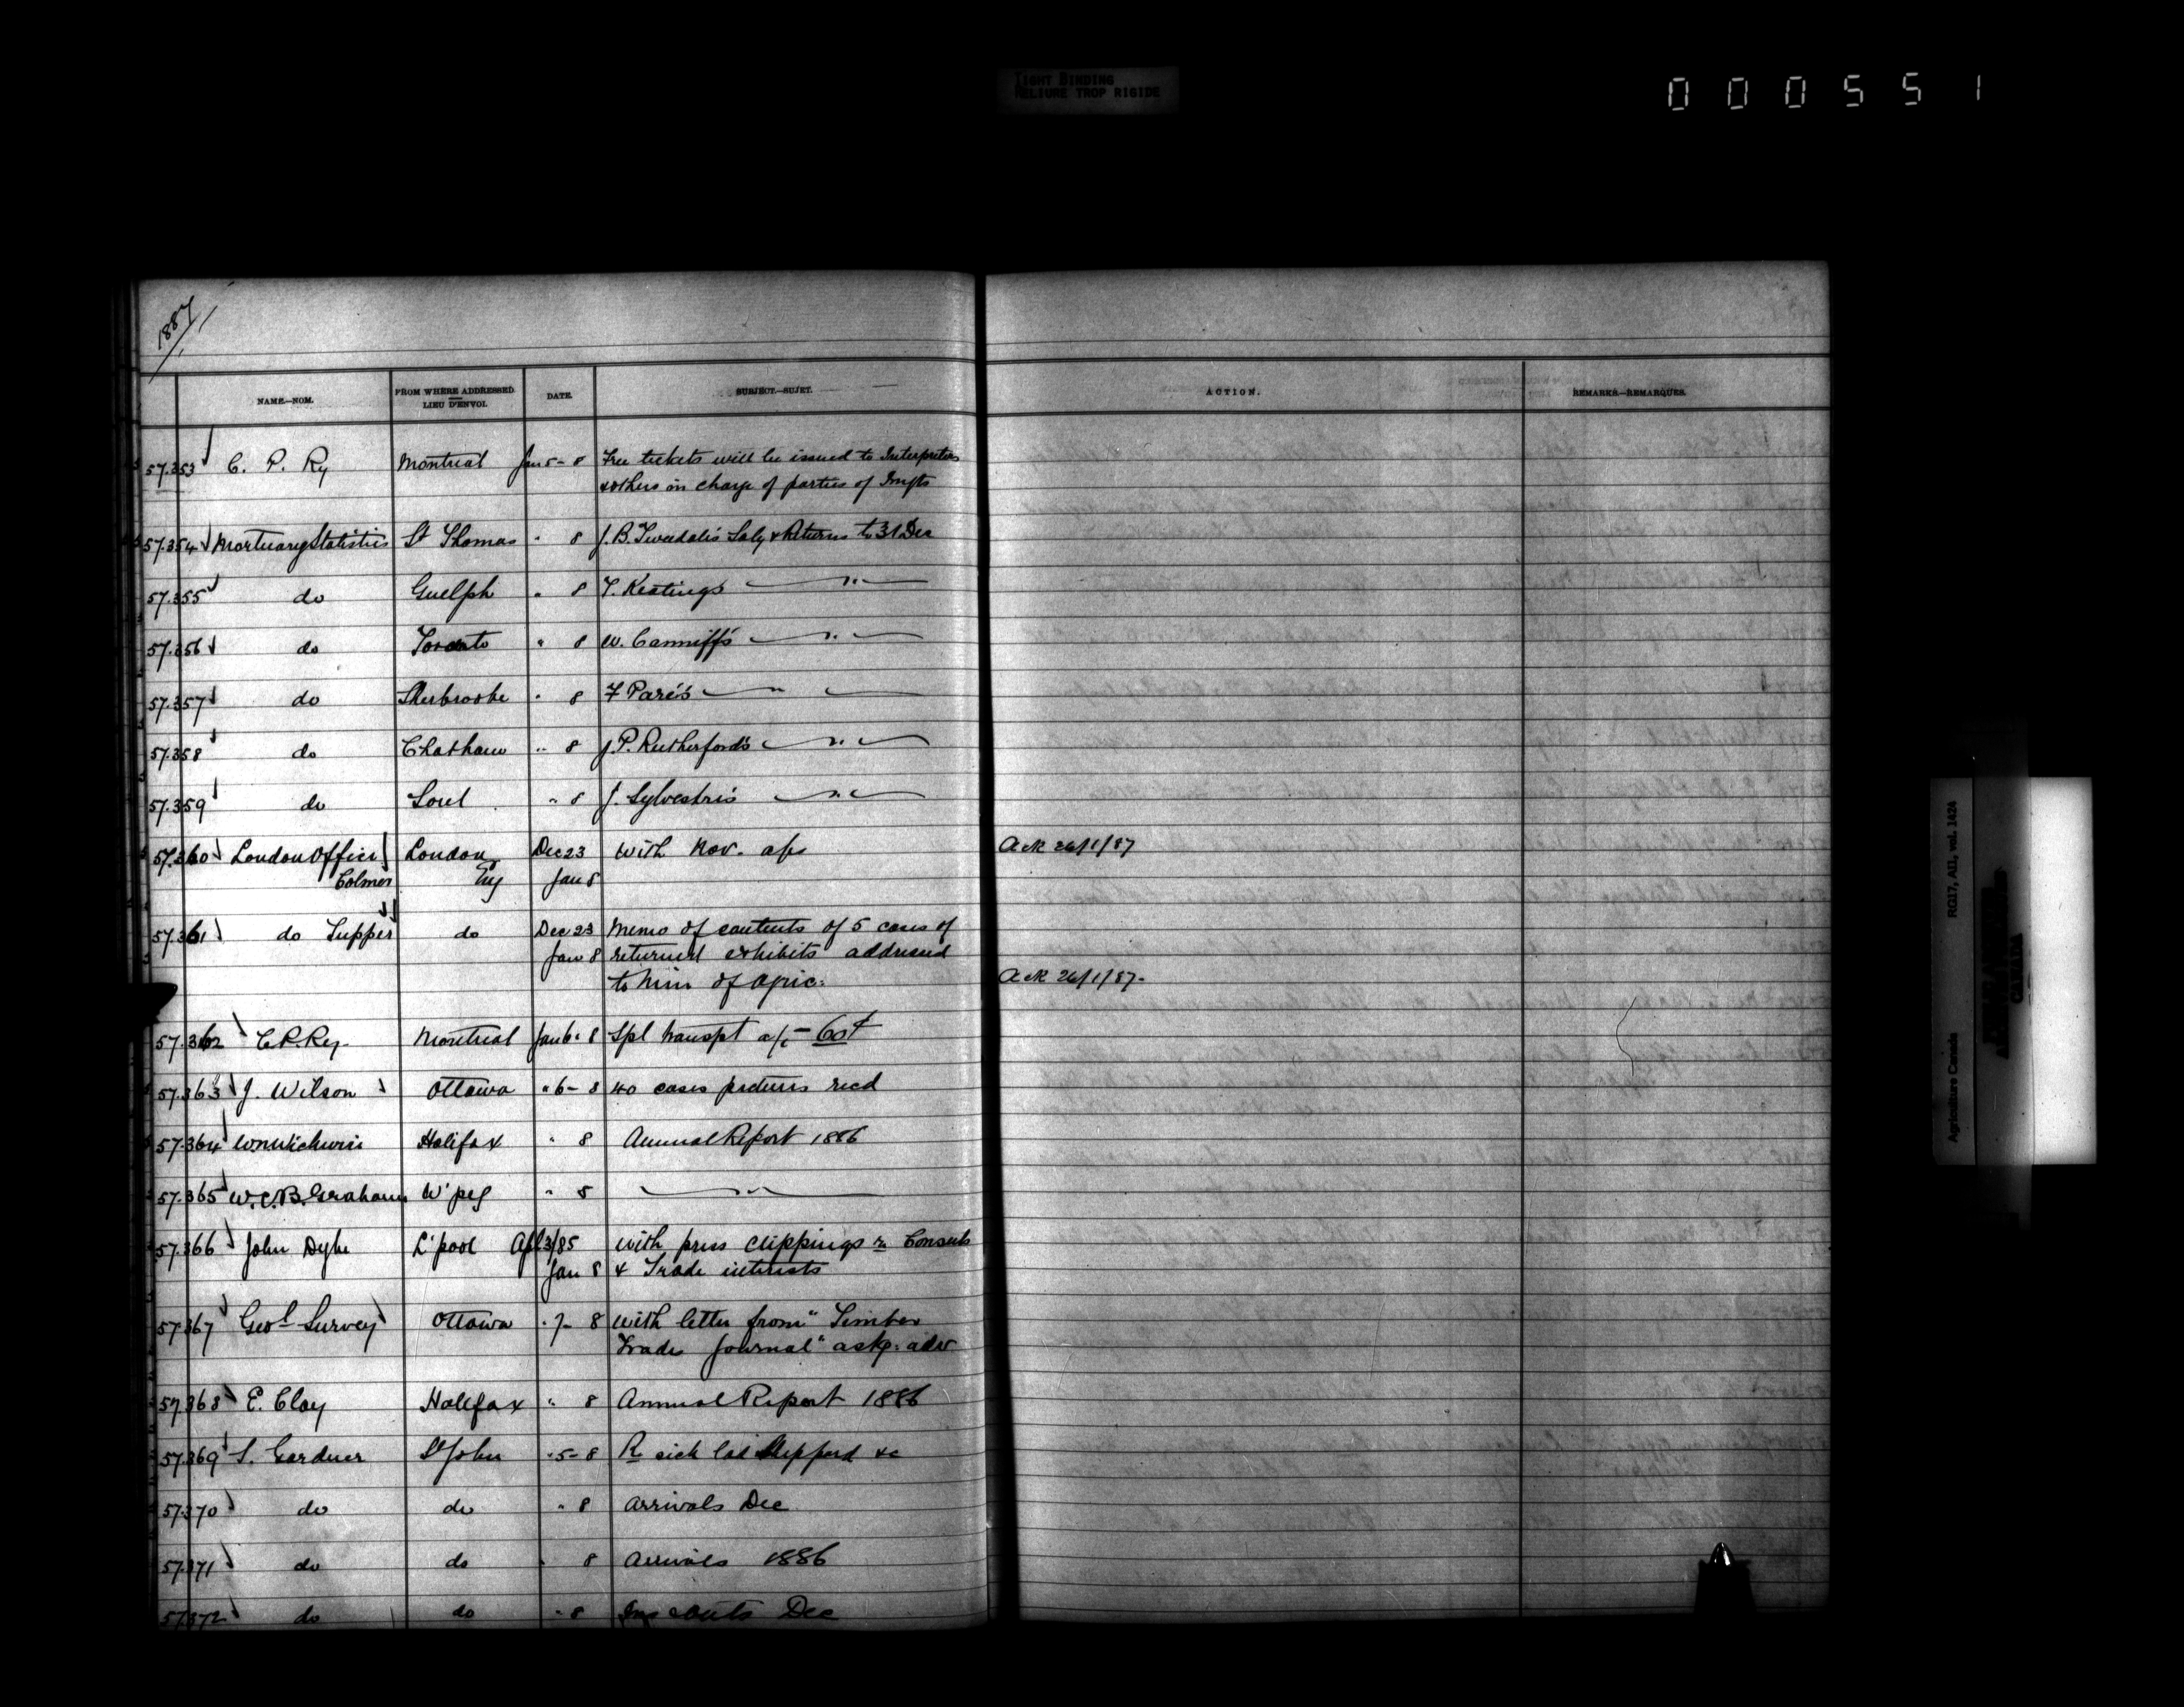 TIGHT BINDING
RELIURE TROP RIGIDE
000551
1887
NAME.—NOM. FROM WHERE ADDRESSED. LIEU D'ENVOI. DATE. SUBJECT.—SUJET. ACTION. REMARKS.—REMARQUES.
57.353 C. P. Ry Montreal Jan 5 - 8 Free tickets will be issued to Interpreters
& others in charge of parties of Imgts
57.354 Mortuary Statistics St Thomas " 8 J. B. Tweedale's Saly & Returns to 31 Dec
57.355 do Guelph " 8 T. Keating's — " —
57.356 do Toronto " 8 W. Canniff's — " —
57.357 do Sherbrooke " 8 F Paré's — " —
57.358 do Chatham " 8 J. P. Rutherford's — " —
57.359 do Sorel " 8 J. Sylvestre's — " —
57.360 London Office London Dec 23 With Nov. a/cs Ack 26/1/87
Colmer Eng Jan 8
57.361 do Tupper do Dec 23 Memo of contents of 5 cases of
Jan 8 returned exhibits addressed
to Min of Agric: Ack 26/1/87-
57.362 C.P.Ry. Montreal Jan 6 " 8 Spl transpt a/c -
57.363 J. Wilson Ottawa " 6 - 8 40 cases pictures recd
57.364 Halifax " 8 Annual Report 1886
57.365 W.C.B. Grahame W'peg " 8 — " —
57.366 John Dyke L'pool Apl 3/85 With press clippings re Consuls
Jan 8 & Trade interests
57.367 Geol Survey Ottawa " 7- 8 With letter from "Timber
Trades Journal" askg: adv
57.368 E. Clay Halifax " 8 Annual Report 1886
57.369 S. Gardner St John " 5 - 8 Re sick lad Shepperd &c
57.370 do do " 8 Arrivals Dec
57.371 do do " 8 Arrivals 1886
57.372 do do " 8 Dec
RG17, A11, vol. 1424
Agriculture Canada